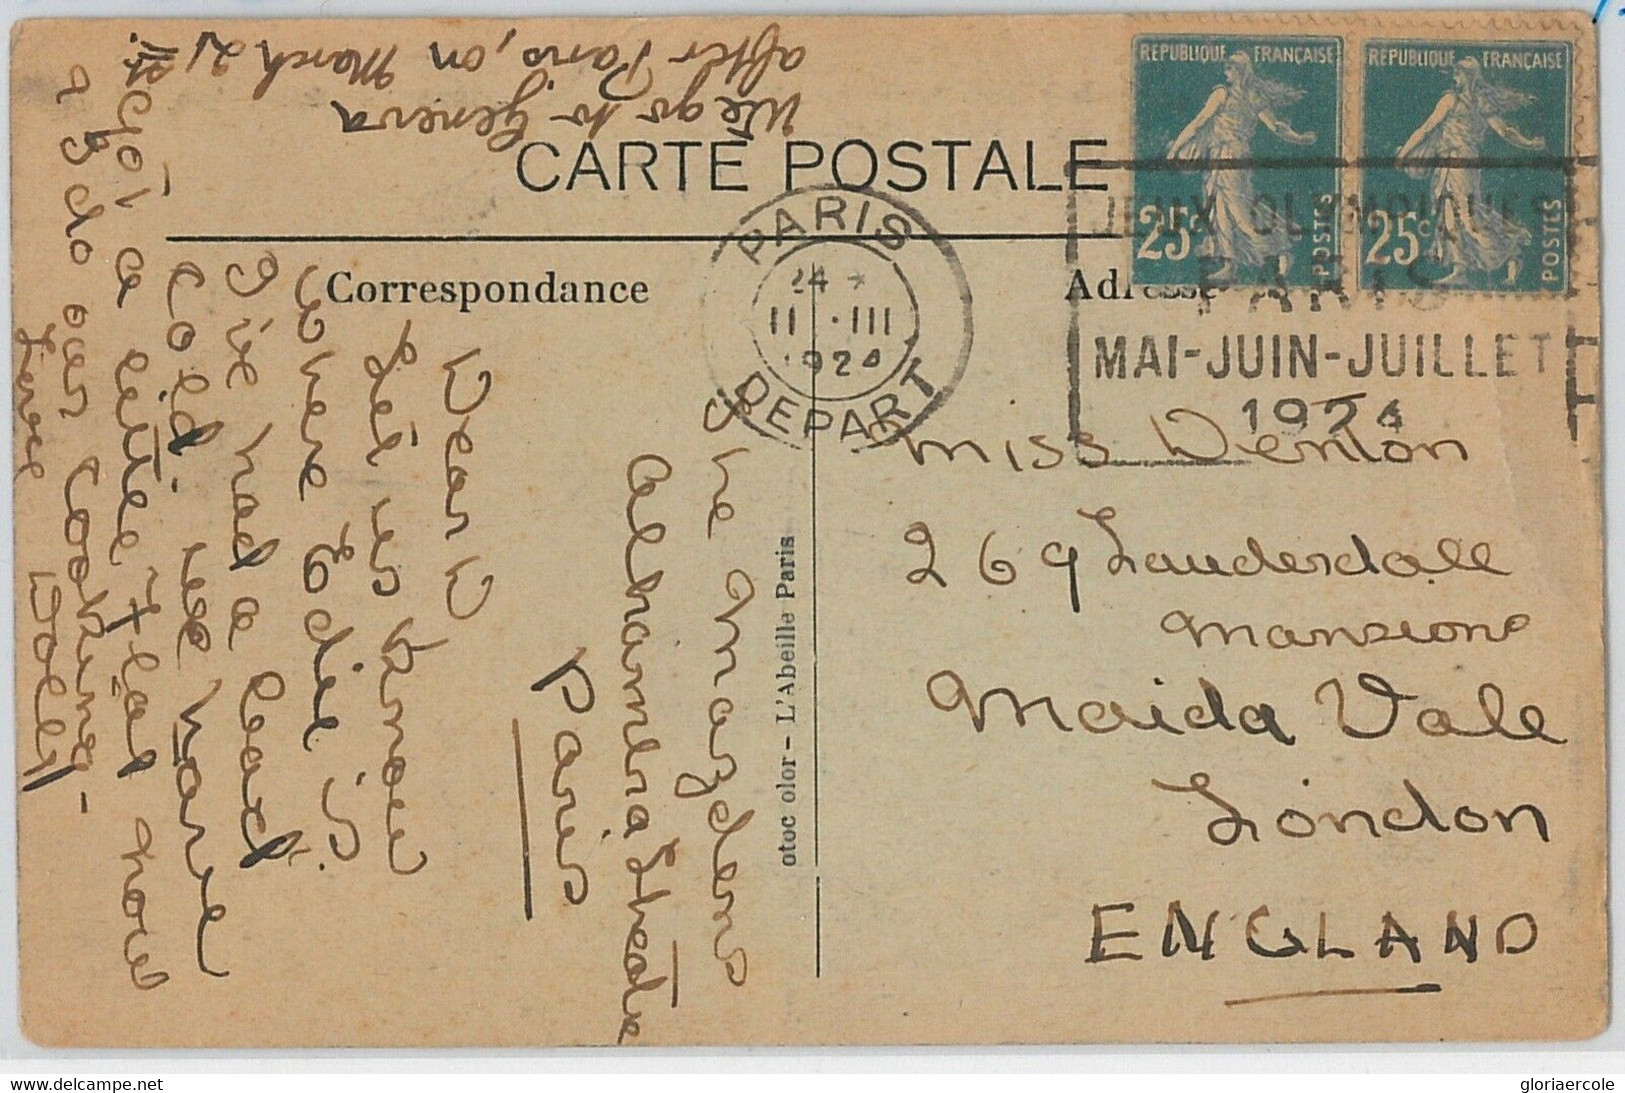 We go to Geneva
after Paris, on March 21st.
CARTE POSTALE
Correspondance
Adresse
REPUBLIQUE FRANÇAISE
25c POSTES
REPUBLIQUE FRANÇAISE
25c POSTES
PARIS
24
11 · III
1924
DEPART
JEUX OLYMPIQUES
PARIS
MAI-JUIN-JUILLET
1924
The Mazdens
Alhambra Theatre
Paris
Dear D
Let us know
where Edie is.
I've had a bad
cold. We have
Got a little flat now
& do our cooking -
Love Dolly
otoc olor - L'Abeille Paris
Miss Denton
269 Lauderdale
Mansions
Maida Vale
London
ENGLAND
gloriaercole